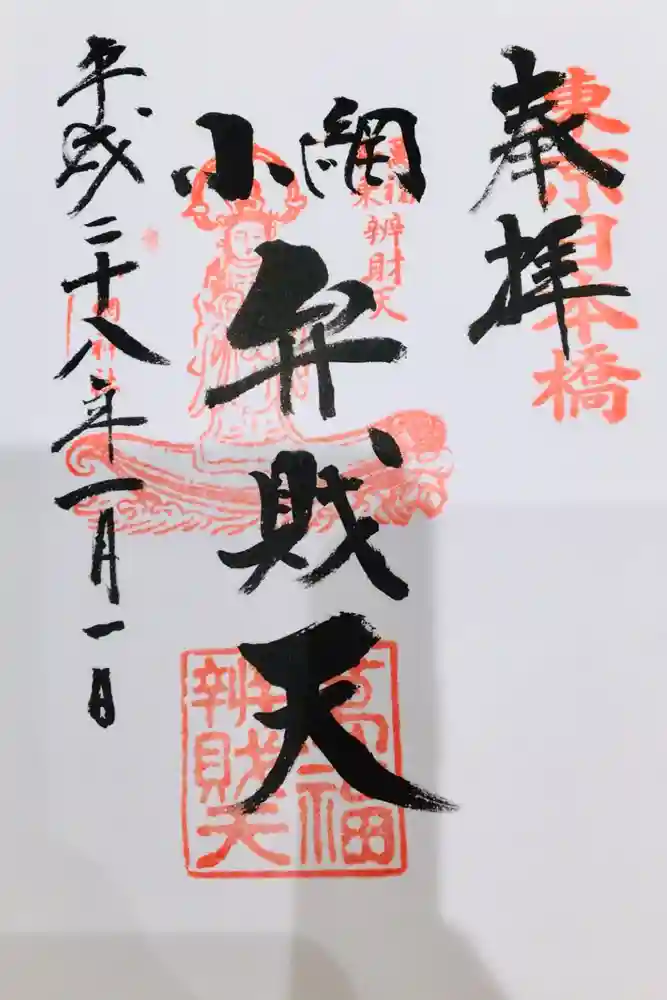 奉拝
東京日本橋
小網
弁財天
辨財天
萬福
辨財天
平成二十八年一月一日